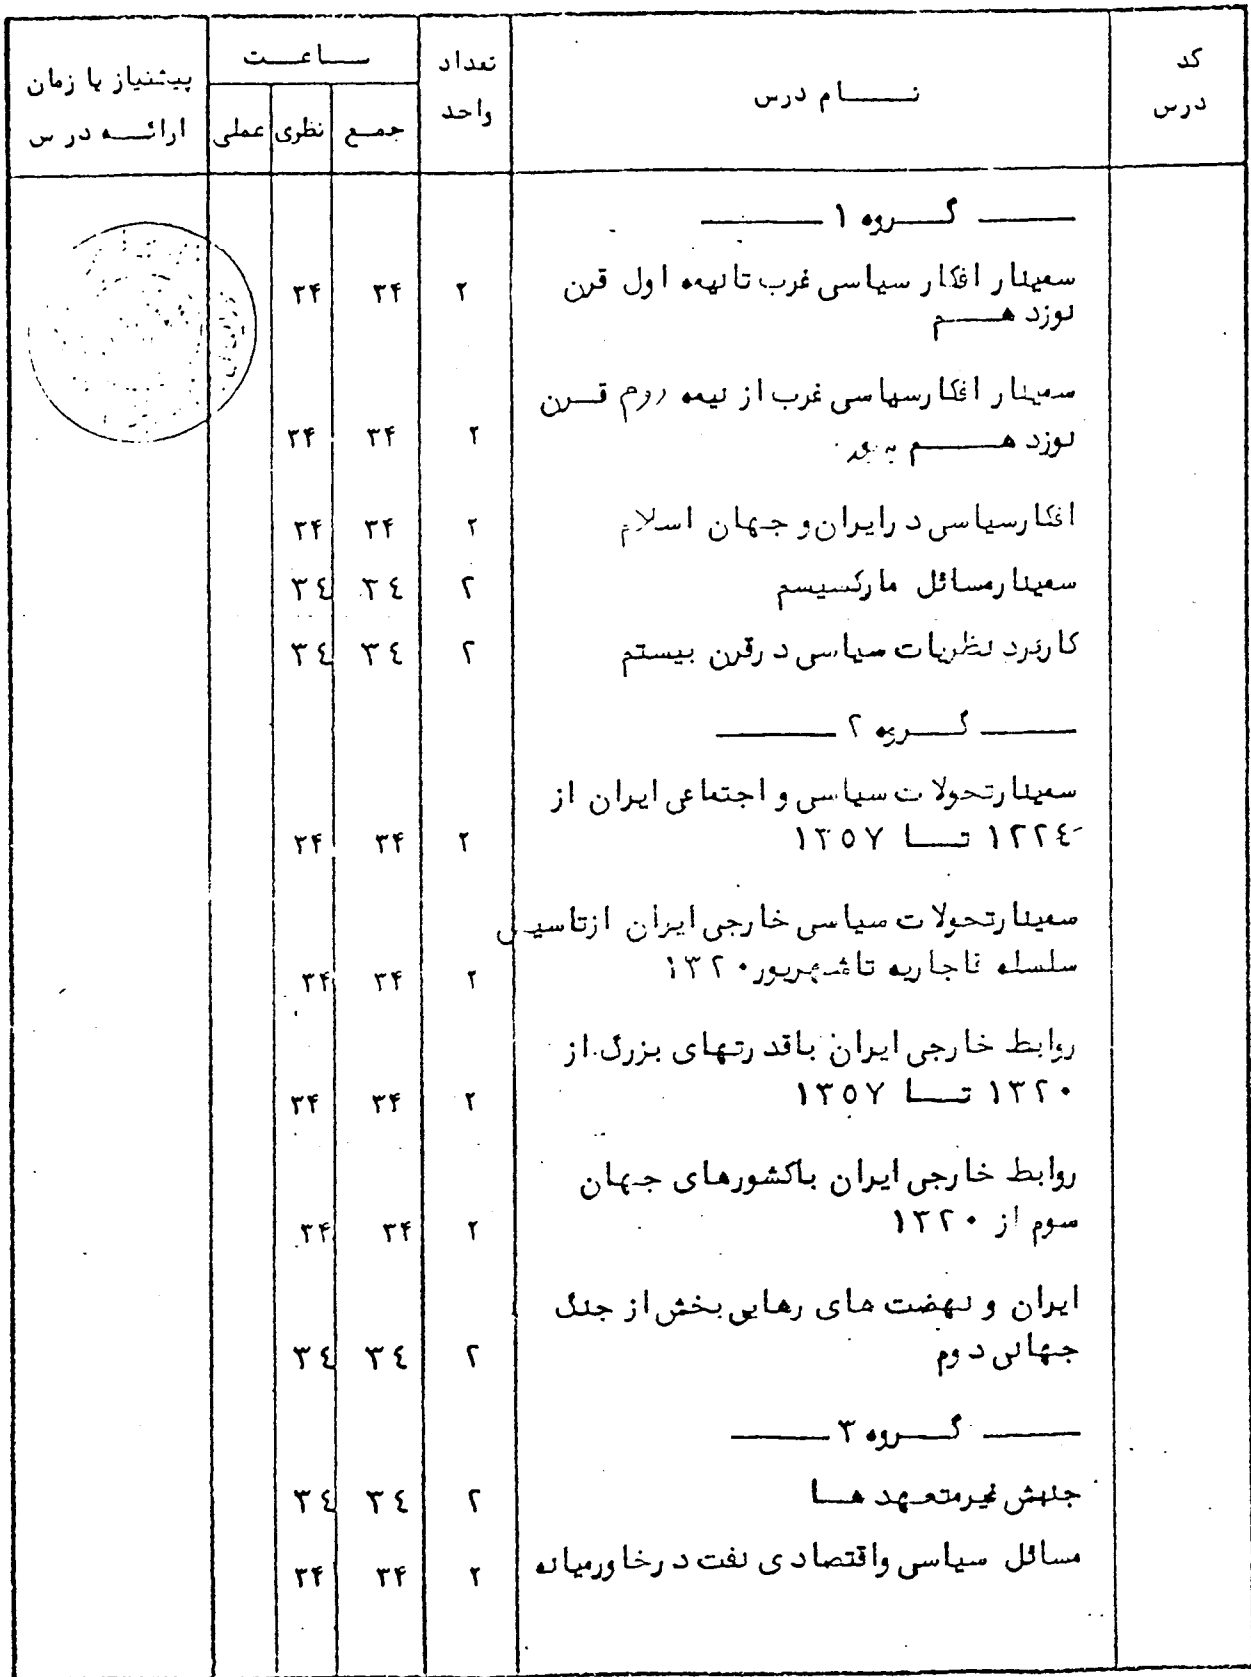 کد درس
نام درس
تعداد واحد
ساعت
جمع
نظری
عملی
پیشنیاز یا زمان ارائه درس
گروه ۱
سمینار افکار سیاسی غرب تا نیمه اول قرن
نوزدهم
۲ ۳۴ ۳۴
سمینار افکار سیاسی غرب از نیمه دوم قرن
نوزدهم ببعد
۲ ۳۴ ۳۴
افکار سیاسی در ایران و جهان اسلام ۲ ۳۴ ۳۴
سمینار مسائل مارکسیسم ۲ ۳۴ ۳۴
کاربرد نظریات سیاسی در قرن بیستم ۲ ۳۴ ۳۴
گروه ۲
سمینار تحولات سیاسی و اجتماعی ایران از
۱۲۲۴ تا ۱۳۵۷ ۲ ۳۴ ۳۴
سمینار تحولات سیاسی خارجی ایران از تاسیس
سلسله قاجاریه تا شهریور ۱۳۲۰ ۲ ۳۴ ۳۴
روابط خارجی ایران با قدرتهای بزرگ از
۱۳۲۰ تا ۱۳۵۷ ۲ ۳۴ ۳۴
روابط خارجی ایران با کشورهای جهان
سوم از ۱۳۲۰ ۲ ۳۴ ۳۴
ایران و نهضت های رهایی بخش از جنگ
جهانی دوم ۲ ۳۴ ۳۴
گروه ۳
جنبش غیرمتعهدها ۲ ۳۴ ۳۴
مسائل سیاسی و اقتصادی نفت در خاورمیانه ۲ ۳۴ ۳۴